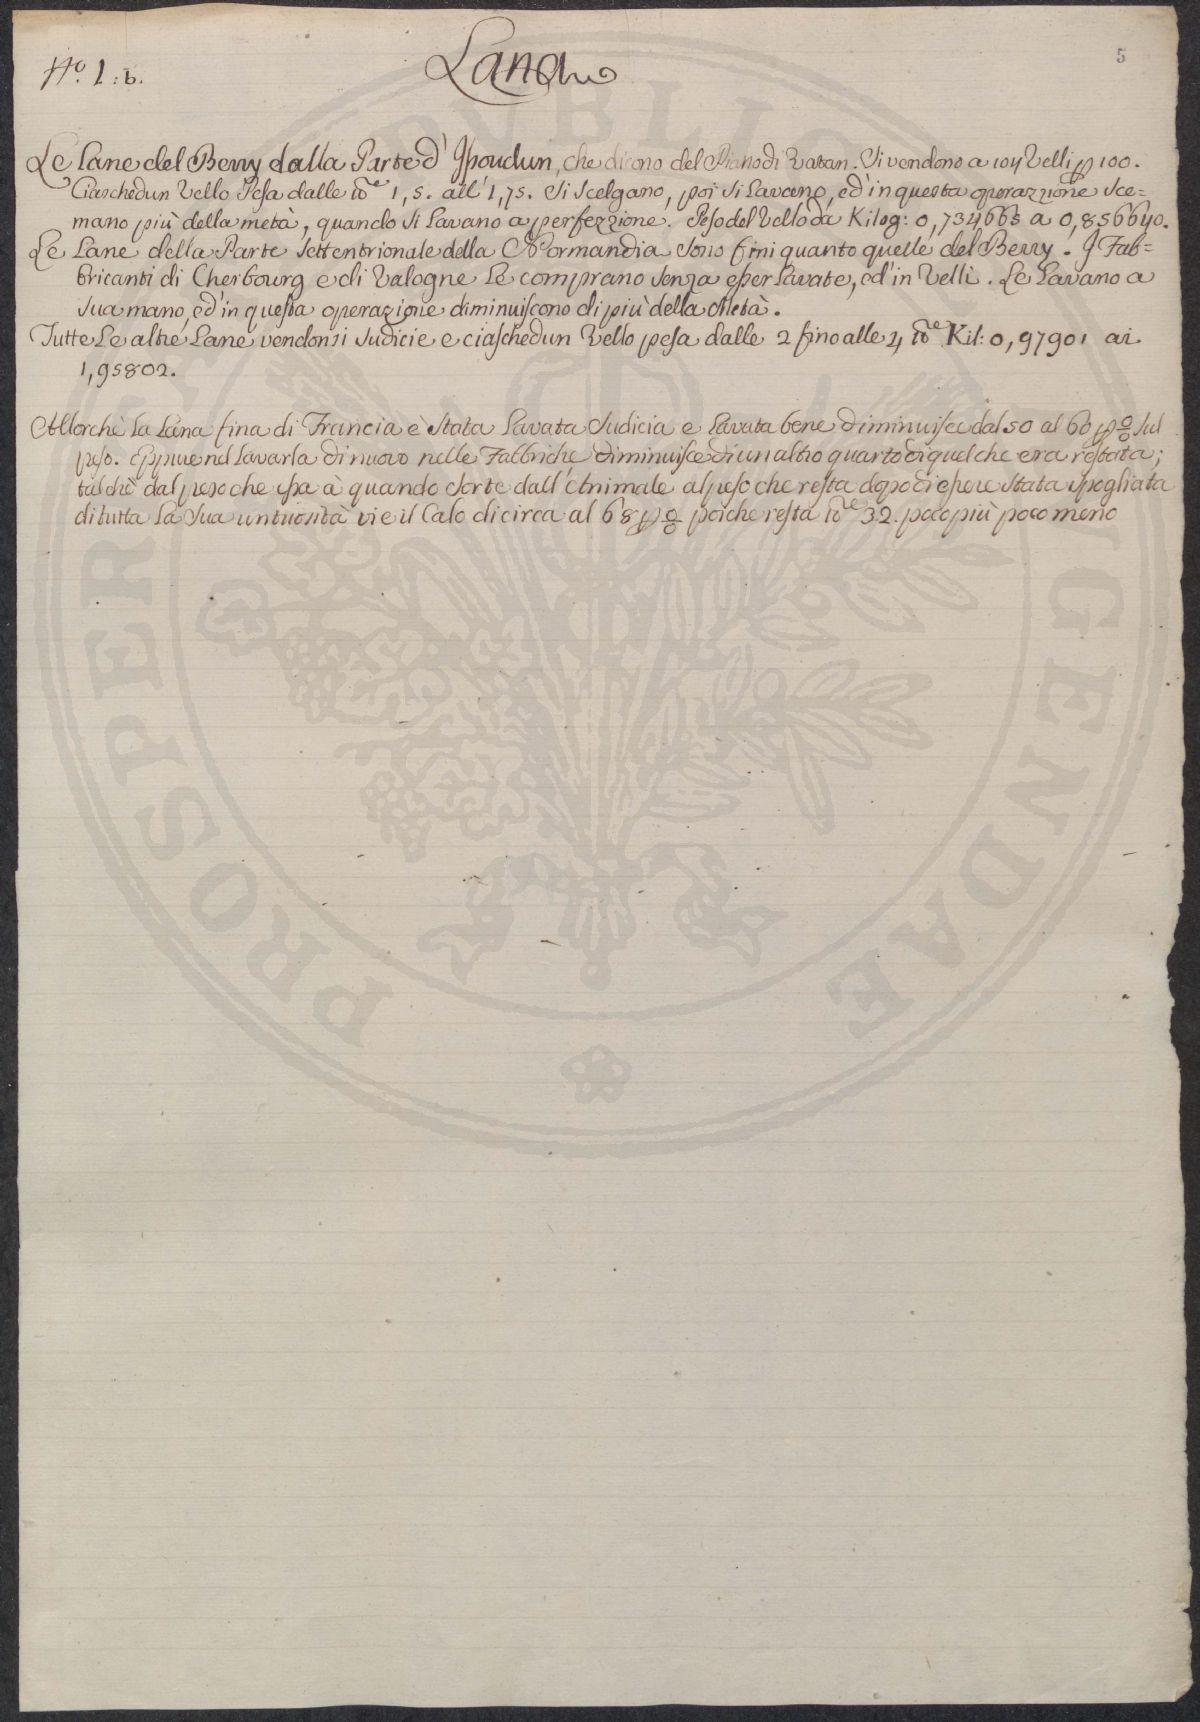 N.º 1:b.
Lana
5
Le Lane del Berry dalla Parte d'Issoudun, che dicono del Piano di Vatan. Si vendono a 104 Velli p 100.
Ciaschedun Vello Pesa dalle lb.e 1,5. all'1,75. Si Scelgano, poi Si Lavano, ed'in questa operazzione Sce=
mano più della metà, quando Si Lavano a perfezzione. Peso del Vello da Kilog: 0,734665 a 0,856640.
Le Lane della Parte Settentrionale della Normandia Sono fini quanto quelle del Berry. I Fab=
bricanti di Cherbourg e di Valogne Le comprano Senza esser Lavate, ed'in Velli. Le Lavano a
Sua mano, ed'in questa operazione diminuiscono di più della Metà.
Tutte Le altre Lane vendonsi Sudicie e ciaschedun Vello pesa dalle 2 fino alle 4 lb.e Kil: 0,97901 ai
1,95802.
Allorchè La Lana fina di Francia è Stata Lavata Sudicia e Lavata bene diminuisce dal 50 al 60 p % Sul
peso. Eppure nel Lavarla di nuovo nelle Fabbriche diminuisce di un altro quarto di quel che era restata;
talchè dal peso che essa à quando Sorte dall'Animale al peso che resta dopo di essere Stata Spogliata
di tutta La Sua untuosità vi è il Calo di circa al 68 p % poiche resta lb.e 32. poco più poco meno
PROSPERITATI PVBLICAE AVGENDAE